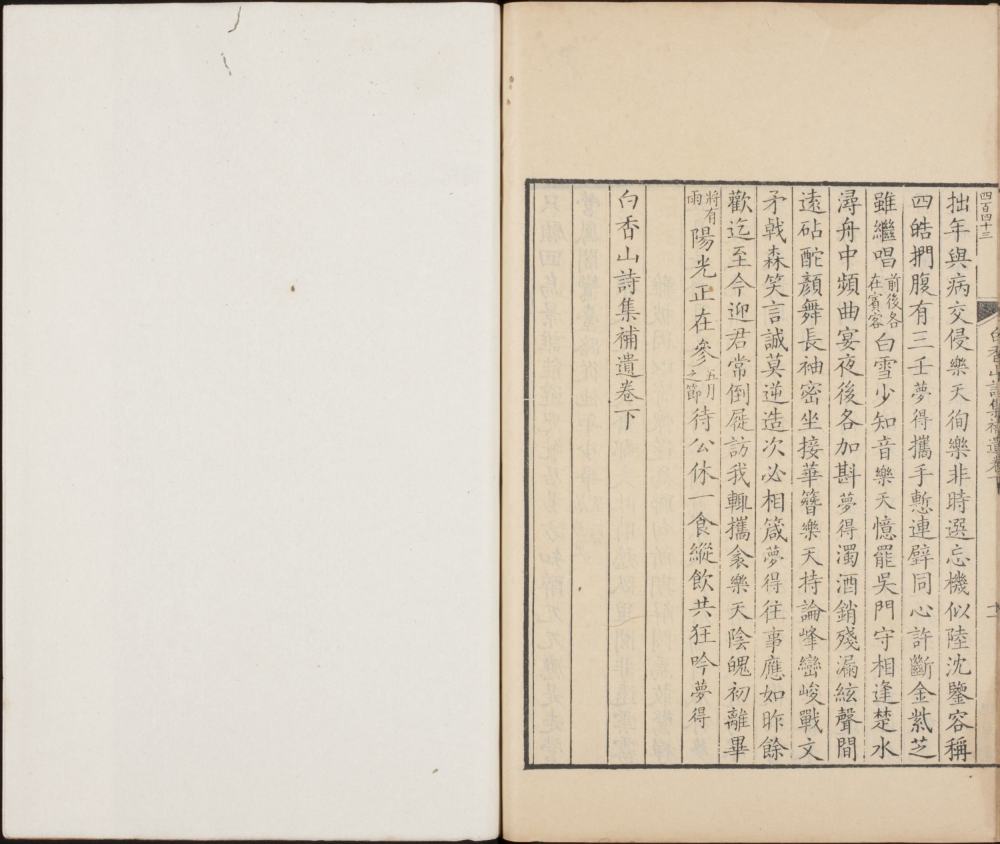 四百四十三
白香山詩集補遺卷下
十一
拙年與病交侵樂天徇樂非時選忘機似陸沈鑒容稱
四皓捫腹有三壬夢得攜手慙連璧同心許斷金紫芝
雖繼唱前後各在賓客白雪少知音樂天憶罷吳門守相逢楚水
潯舟中頻曲宴夜後各加斟夢得濁酒銷殘漏絃聲間
遠砧酡顏舞長袖密坐接華簪樂天持論峰巒峻戰文
矛戟森笑言誠莫逆造次必相箴夢得往事應如昨餘
歡迄至今迎君常倒屣訪我輒攜衾樂天陰魄初離畢
將有雨陽光正在參五月之節待公休一食縱飲共狂吟夢得
白香山詩集補遺卷下